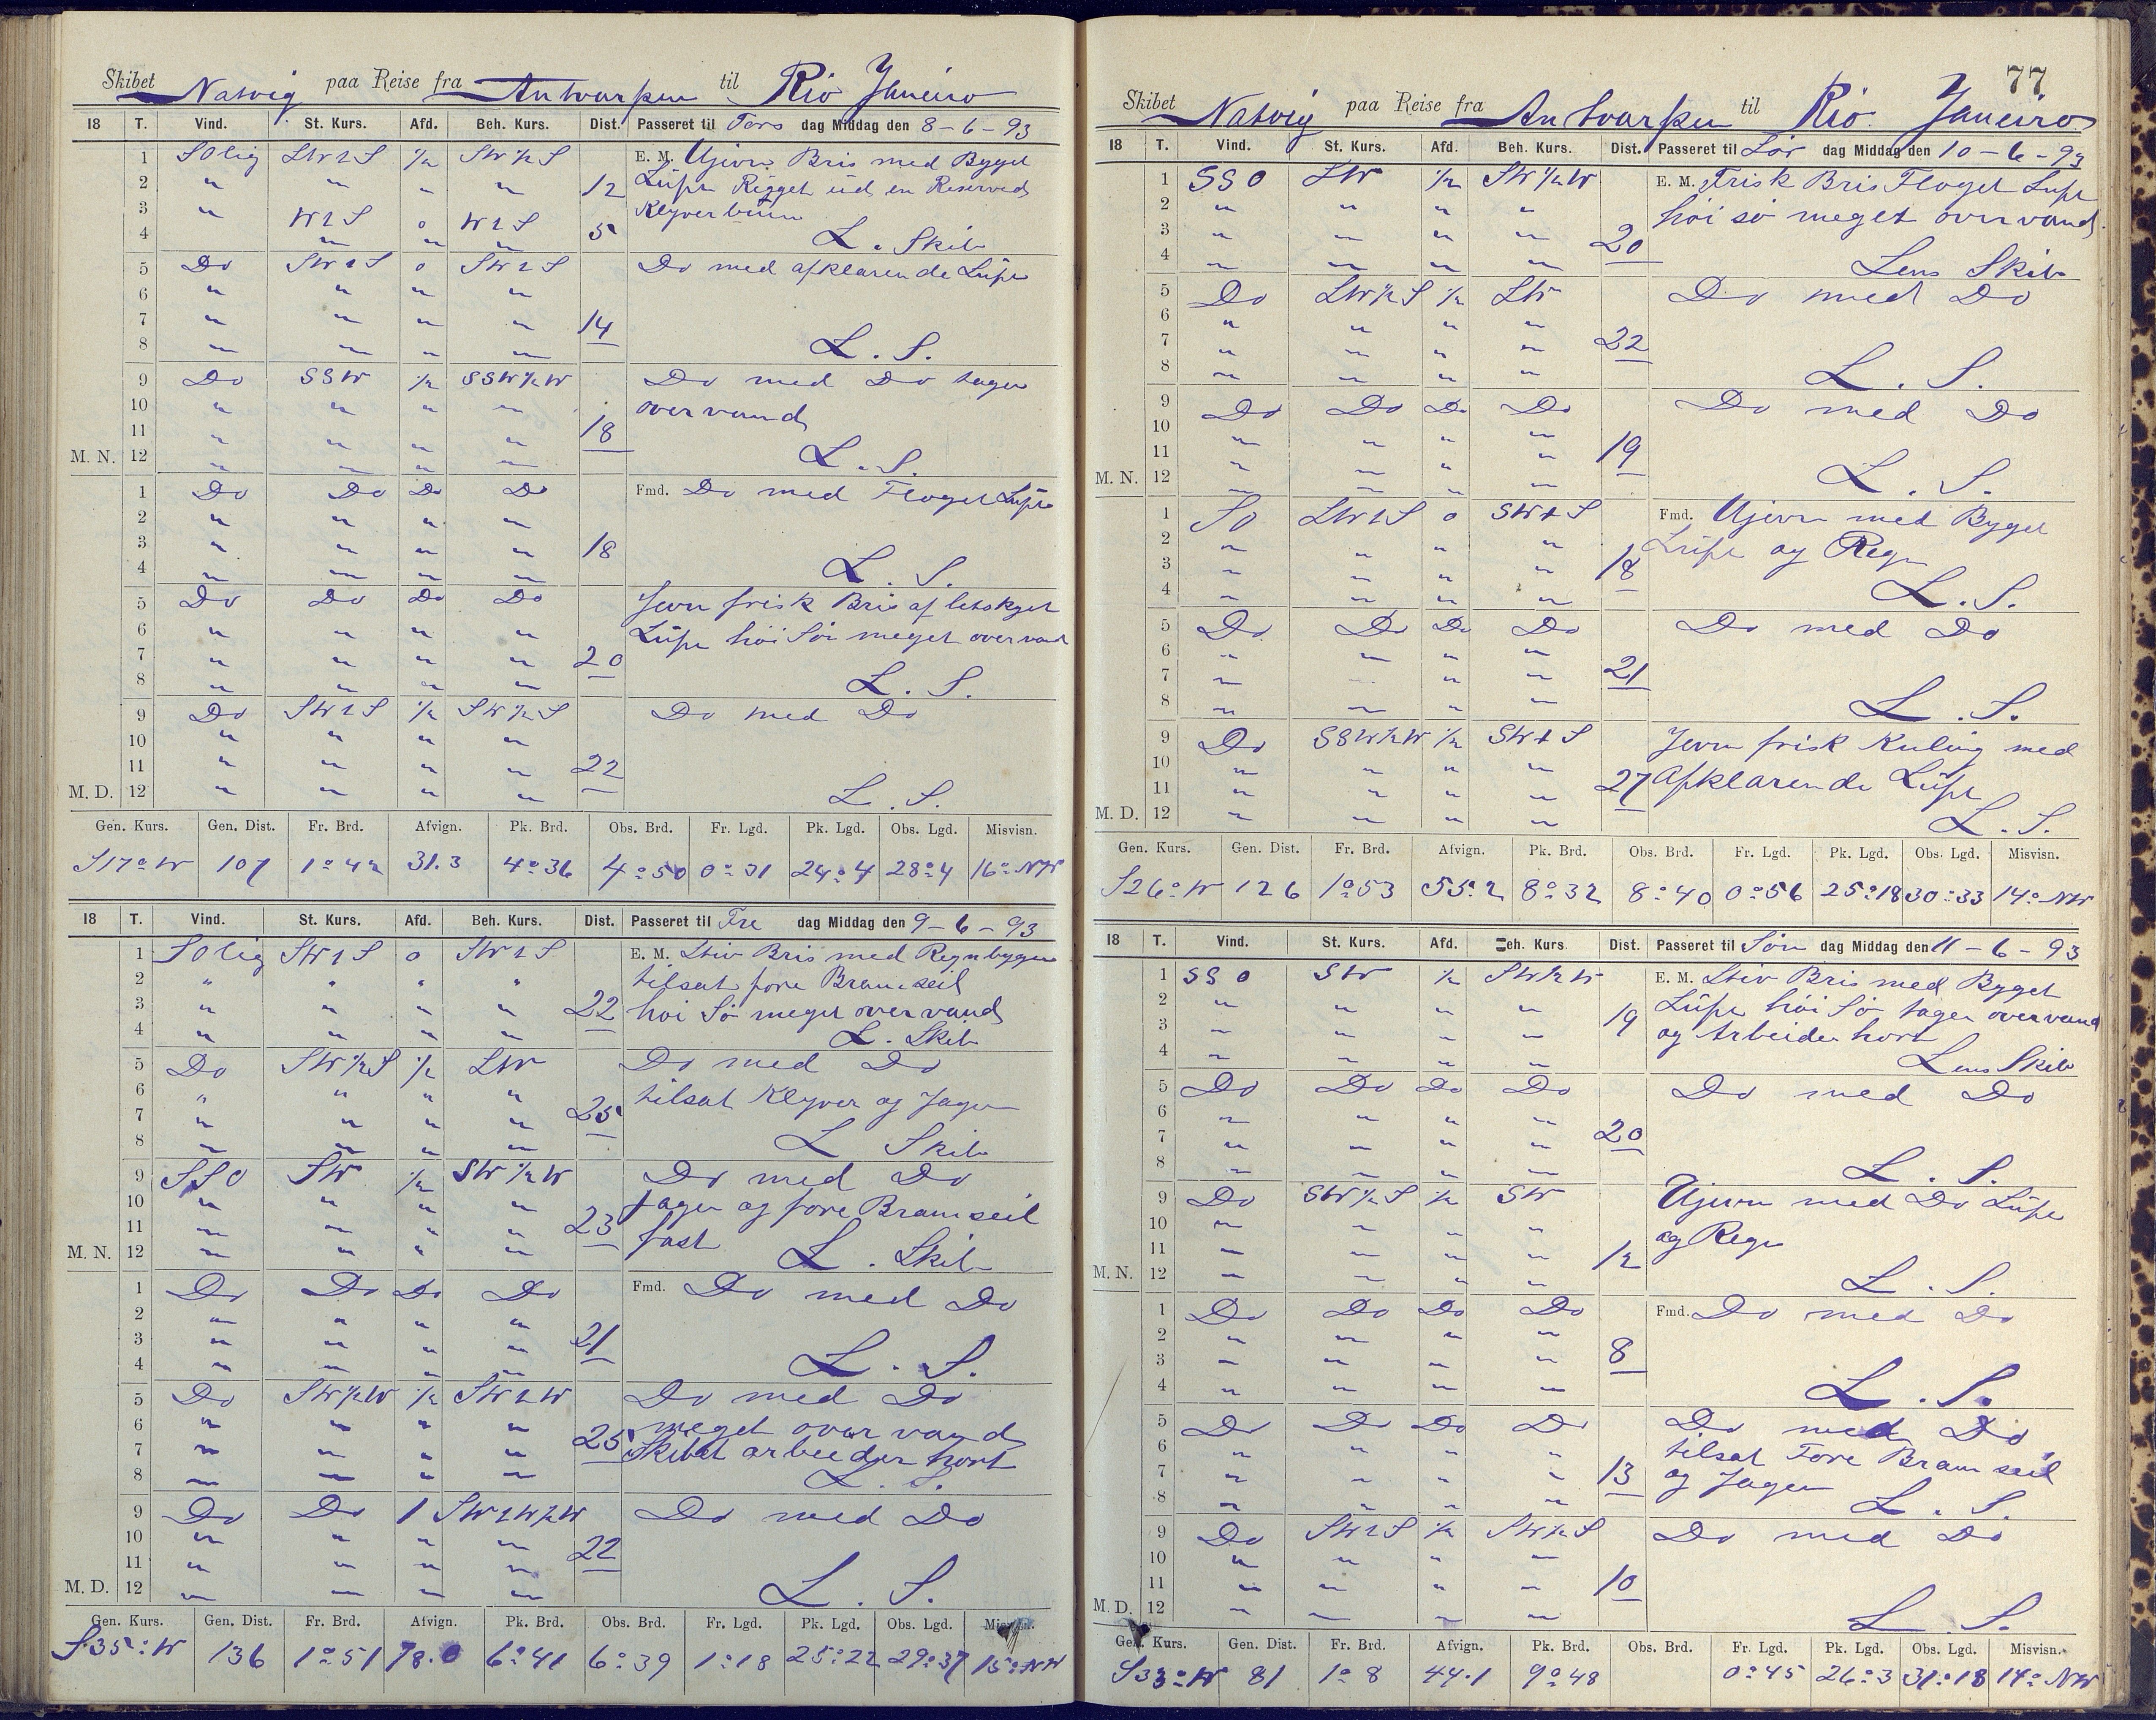 Skibet Natvig paa Reise fra Antwarpen til Rio Janeiro
18 T. Vind. St. Kurs. Afd. Beh. Kurs. Dist. Passeret til Tors dag Middag den 8-6-93
1 SOlig SWzS ½ SW½S E. M. Ujevn Bris med Byget
2 " " " " 12 Luft Rigget ud en Reserved
3 " WzS 0 WzS 5 Klyverbom
4 " " " L. Skib
5 Do SWzS 0 SWzS Do med afklarende Luft
6 " " " "
7 " " " " 14
8 " " " " L. S.
9 Do SSW ½ SSW½W Do med Do tager
10 " " " " overvand
11 " " " " 18
M. N. 12 " " " " L. S.
1 Do Do Do Do Fmd. Do med Floget Luft
2 " " " "
3 " " " " 18
4 " " " " L. S.
5 Do Do Do Do Jevn frisk Bris af letskyet
6 " " " " Luft høi Sø meget overvand
7 " " " " 20
8 " " " " L. S.
9 Do SWzS ½ SW½S Do med Do
10 " " " "
11 " " " " 22
M. D. 12 " " " " L. S.
Gen. Kurs. Gen. Dist. Fr. Brd. Afvign. Pk. Brd. Obs. Brd. Fr. Lgd. Pk. Lgd. Obs. Lgd. Misvisn.
S17°W 107 1°42 31.3 4°36 4°50 0°31 24°4 28°4 16° NW
18 T. Vind. St. Kurs. Afd. Beh. Kurs. Dist. Passeret til Fre dag Middag den 9-6-93
1 SOlig SWzS 0 SWzS E. M. Stiv Bris med Regnbyger
2 " " " " tilsat fore Bramseil
3 " " " " 22 høi Sø meget overvand
4 " " " " L. Skib
5 Do SW½S ½ SW Do med Do
6 " " " " tilsat Klyver og Jager
7 " " " " 25
8 " " " " L Skib
9 SSO SW ½ SW½W Do med Do
10 " " " " Jager og fore Bramseil
11 " " " " 23 fast
M. N. 12 " " " " L. Skib
1 Do Do Do Do Fmd. Do med Do
2 " " " "
3 " " " " 21
4 " " " " L. S.
5 Do SW½W ½ SWzW Do med Do
6 " " " " meget over vand
7 " " " " 25 Skibet arbeider hort
8 " " " " L. S.
9 Do Do 1 SWzW½W Do med Do
10 " " " "
11 " " " " 22
M. D. 12 " " " " L. S.
Gen. Kurs. Gen. Dist. Fr. Brd. Afvign. Pk. Brd. Obs. Brd. Fr. Lgd. Pk. Lgd. Obs. Lgd.
S35°W 136 1°51 78.0 6°41 6°39 1°18 25°22 29°37 15° NW
77
Skibet Natvig paa Reise fra Antvarpen til Rio Janeiro
18 T. Vind. St. Kurs. Afd. Beh. Kurs. Dist. Passeret til Lør dag Middag den 10-6-93
1 SSO SW ½ SW½W E. M. Frisk Bris Floget Luft
2 " " " " høi sø meget overvand
3 " " " " 20
4 " " " " Lens Skib
5 Do SW½S ½ SW Do med Do
6 " " " "
7 " " " " 22
8 " " " " L. S.
9 Do Do Do Do Do med Do
10 " " " "
11 " " " " 19
M. N. 12 " " " " L. S.
1 SO SWzS 0 SWzS Fmd. Ujevn med Byget
2 " " " " Luft og Regn
3 " " " " 18
4 " " " " L. S.
5 Do Do Do Do Do med Do
6 " " " "
7 " " " 21
8 " " " " L. S.
9 Do SSW½W ½ SWzS Jevn frisk Kuling med
10 " " " " Afklarende Luft
11 " " " " 27
M. D. 12 " " " " L. S.
Gen. Kurs. Gen. Dist. Fr. Brd. Afvign. Pk. Brd. Obs. Brd. Fr. Lgd. Pk. Lgd. Obs. Lgd. Misvisn.
S26°W 126 1°53 55.2 8°32 8°40 0°56 25°18 30°33 14° NW
18 T. Vind. St. Kurs. Afd. Beh. Kurs Dist. Passeret til Søn dag Middag den 11-6-93
1 SSO SW ½ SW½W E. M. Stiv Bris med Byget
2 " " " " Luft høi Sø tager overvand
3 " " " " 19 og Arbeider hort
4 " " " " Lens Skib
5 Do Do Do Do Do med Do
6 " " " "
7 " " " " 20
8 " " " " L. S.
9 Do SW½S ½ SW Ujevn med Do Luft
10 " " " " og Regn
11 " " " " 12
M. N. 12 " " " " L. S.
1 Do Do Do Do Fmd. Do med Do
2 " " " "
3 " " " " 8
4 " " " " L. S.
5 Do Do Do Do Do med Do
6 " " " " tilsat Fore Bramseil
7 " " " " 13 og Jager
8 " " " " L. S.
9 Do SWzS ½ SW½S Do med Do
10 " " " "
11 " " " " 10
M. D. 12 " " " " L. S.
Gen. Kurs. Gen. Dist. Fr. Brd. Afvign. Pk. Brd. Obs. Brd. Fr. Lgd. Pk. Lgd. Obs. Lgd. Misvisn.
S33°W 81 1°8 44.1 9°48 0°45 26°3 31°18 14° NW